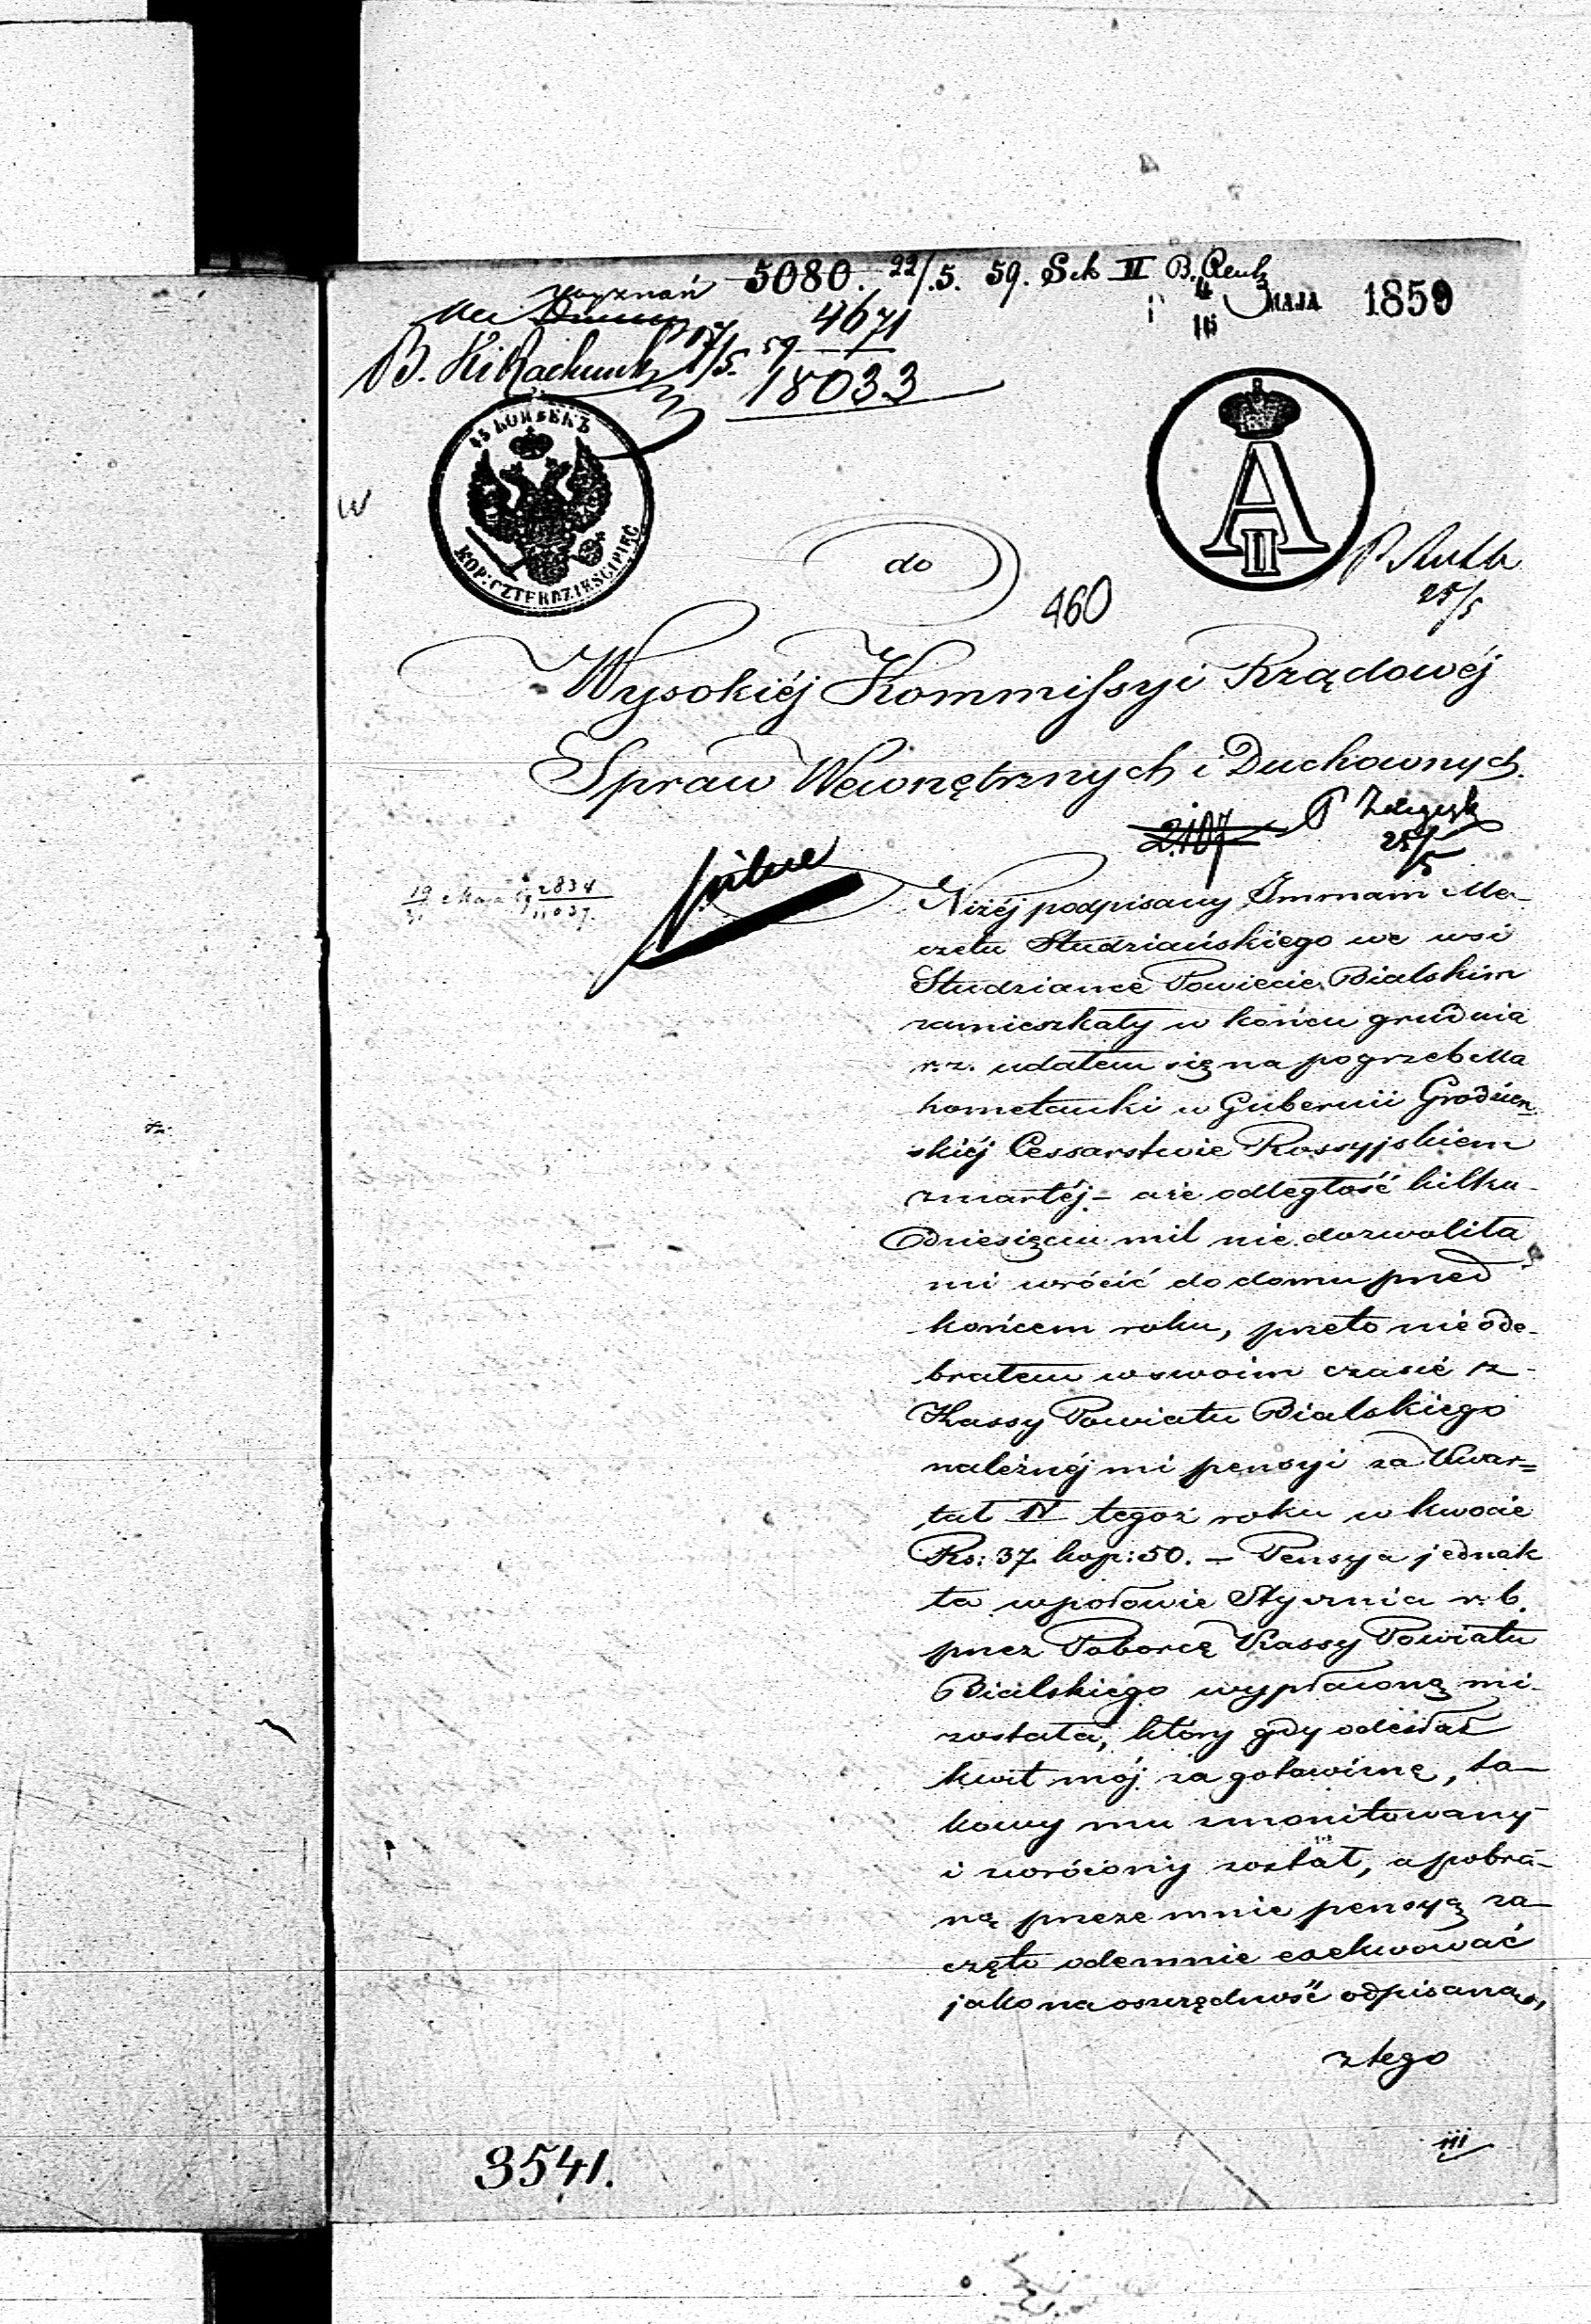 Wyznań 5080. 22/5. 59. Sek II B.
4671
17/5. 59 18033
4/16 MAJA 1859
45 КОПѢЕКЪ
KOP: CZTERDZIEŚCI PIĘĆ
A II
W
do
25/5
460
Wysokiéj Kommissyi Rządowéj
Spraw Wewnętrznych i Duchownych.
2107
25/5
pilne
19/31 Maja 59 2834/11037.
Niżéj podpisany Immam Me-
czetu Studziańskiego we wsi
Studziance Powiecie Bialskim
zamieszkały w końcu grudnia
r. z. udałem się na pogrzeb Ma
hometanki w Gubernii Grodzień
skiéj Cessarstwie Rossyjskiem
zmarłéj – a że odległość kilku
dziesięciu mil nie dozwoliła
mi wrócić do domu przed
końcem roku, przeto nie ode-
brałem w swoim czasie z
Kassy Powiatu Bialskiego
należnéj mi pensyi za Kwar=
tał IV tegoż roku w kwocie
Rs: 37 kop: 50. – Pensya jednak
ta w połowie Stycznia r. b.
przez Poborcę Kassy Powiatu
Bialskiego wypłaconą mi
została, który gdy odesłał
kwit mój za gotowiznę, ta-
kowy mu zmonitowany
i zwrócony został, a pobra-
ną przeze mnie pensyą za-
częto odemnie exekwować
jako na oszczędność odpisaną,
z tego
3541.